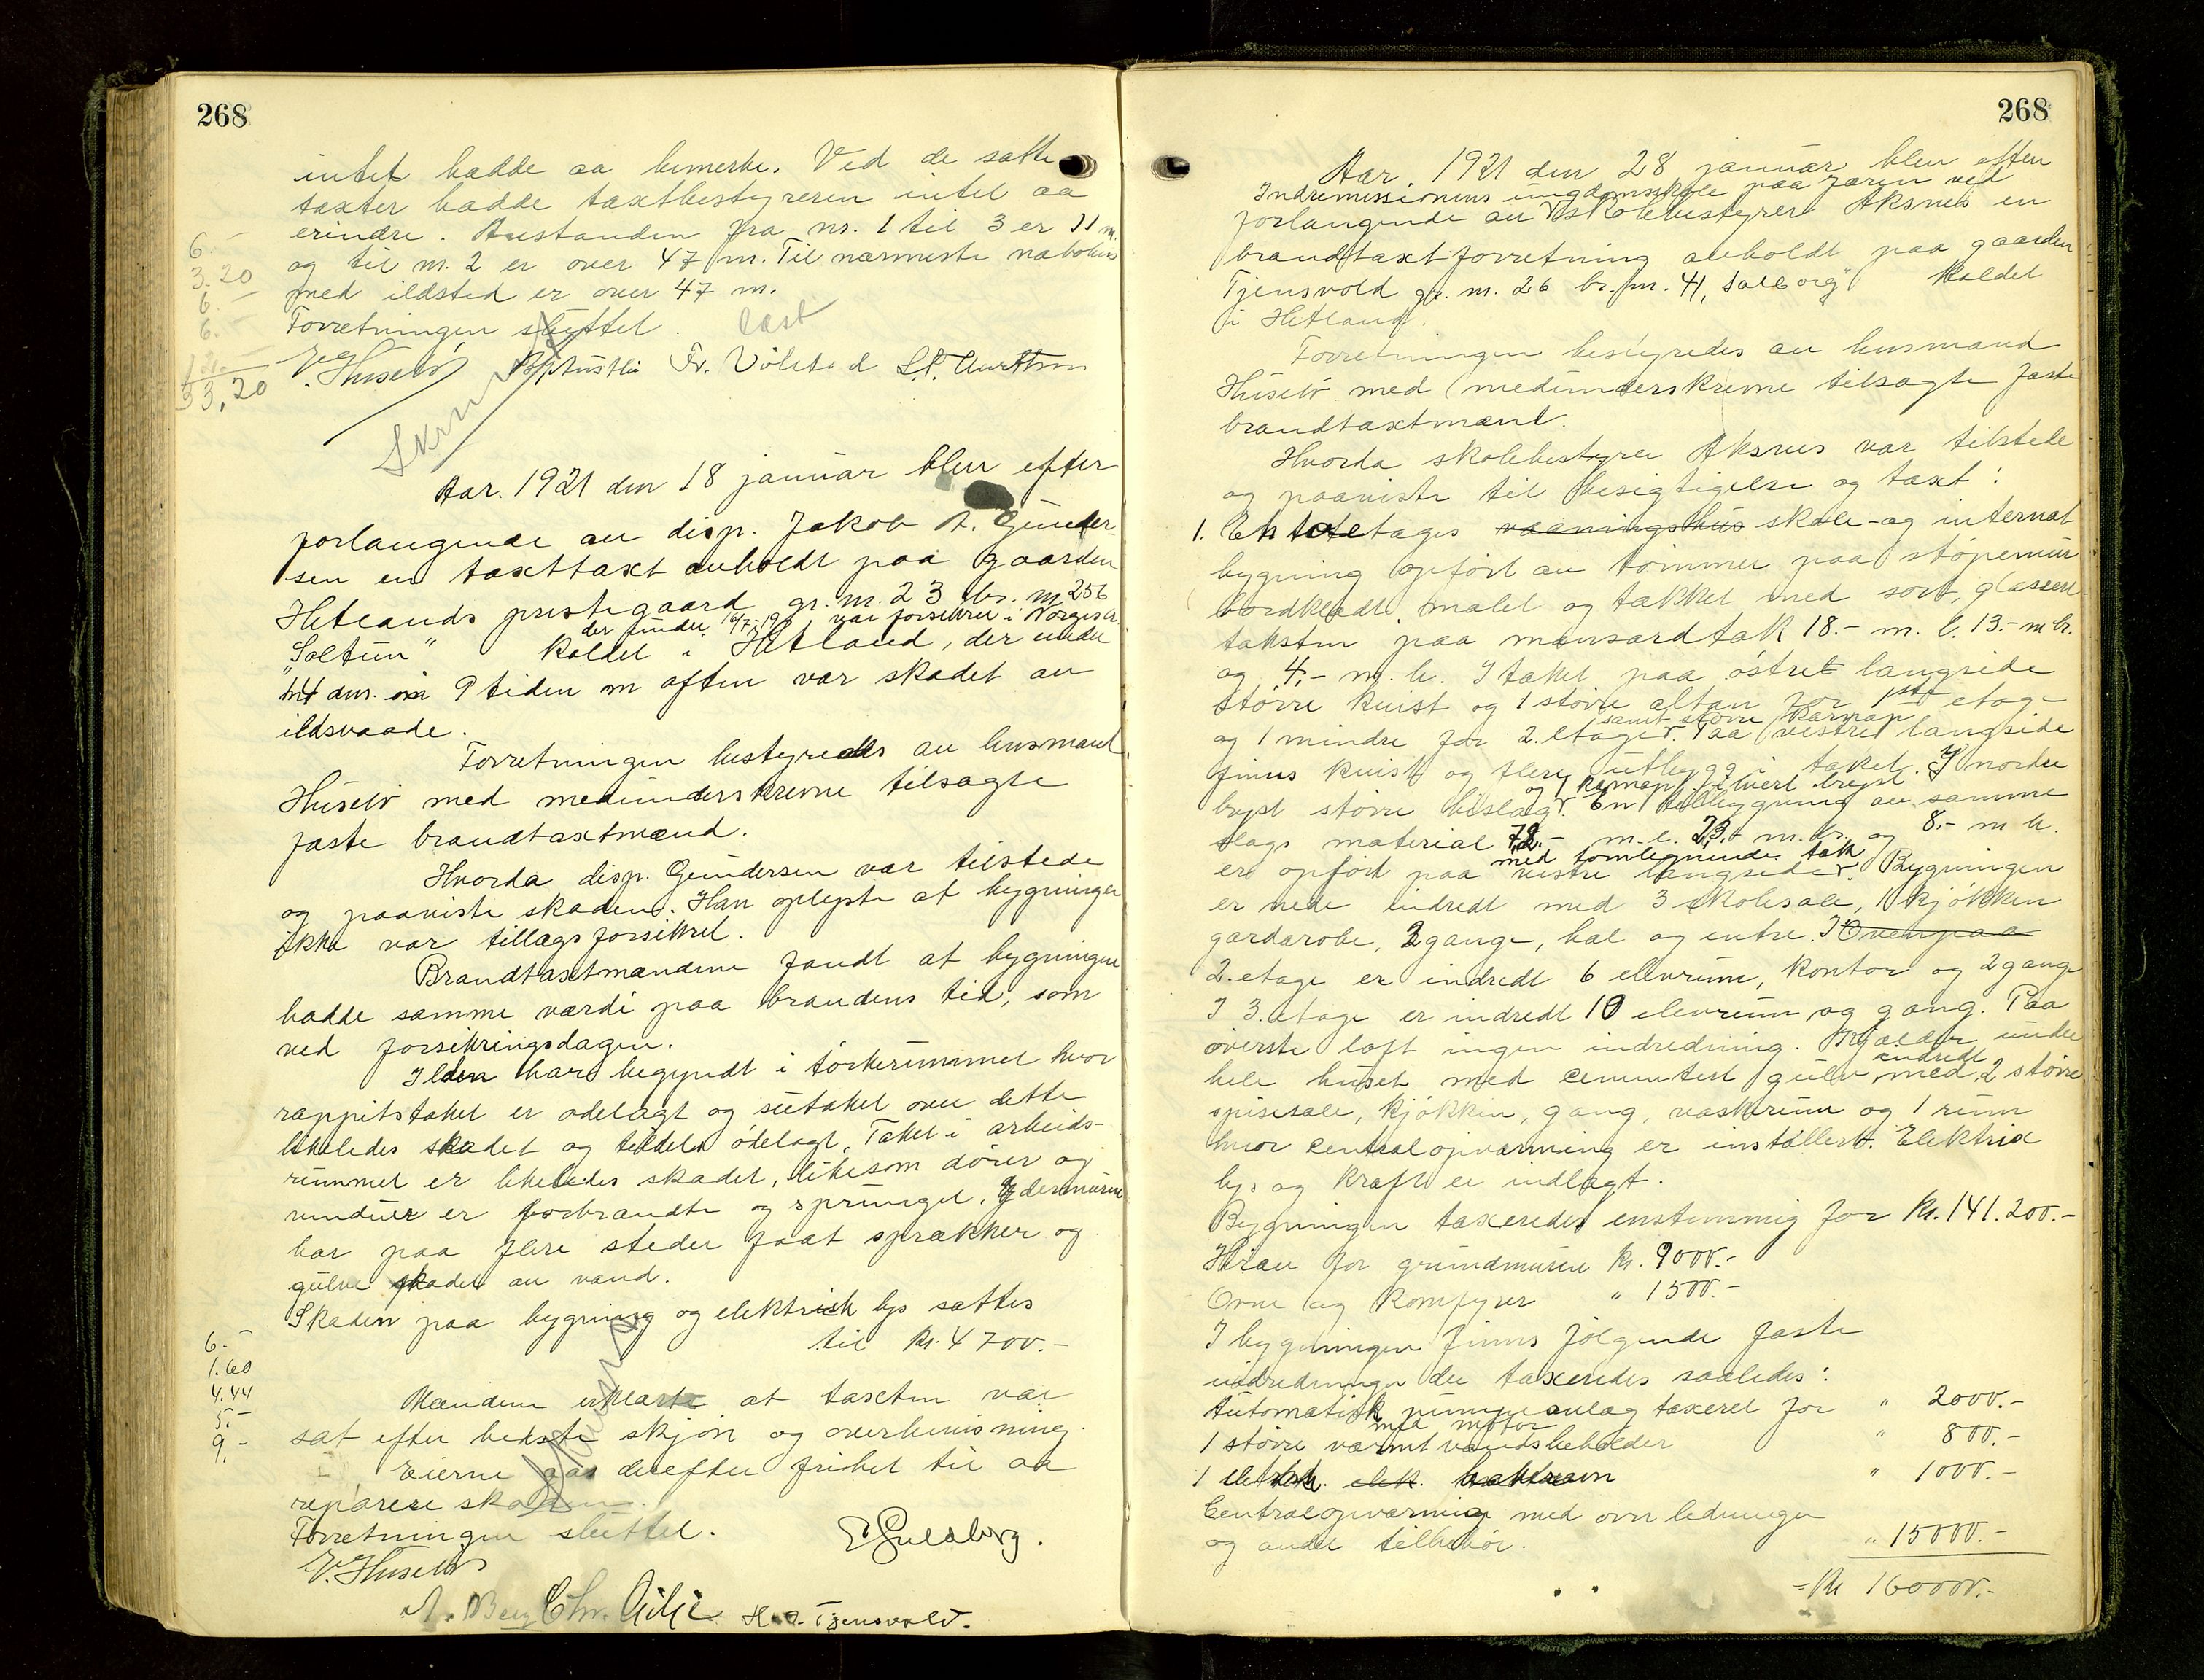 268
intet hadde aa bemerke. Ved de satte
taxter hadde taxtbestyreren intet aa
erindre. Avstanden fra nr. 1 til 3 er 11 m.
og til nr. 2 er over 47 m. Til nærmeste nabohus
med ildsted er over 47 m.
Forretningen sluttet. læst
6.-
3.20
6.-
6.-
33,20
V. Husebø Fr. Völstad
Skrevet
Aar. 1921 den 18 januar blev efter
forlangende av disp. Jakob A. Gunder-
sen en taxttaxt avholdt paa gaarden
Hetlands prestegaard gr. nr. 23 br. nr 256
der under var forsikret i Norges
"Soltun" kaldet i Hetland, der under
14 dns. 9 tiden om aften var skadet av
ildsvaade.
Forretningen bestyredes av lensmand
Husebø med medunderskrevne tilsagte
faste brandtaxtmænd.
Hvorda disp. Gundersen var tilstede
og paaviste skaden. Han oplyste at bygningen
ikke var tillægsforsikret.
Brandtaxtmændene fandt at bygningen
hadde samme værdi paa brandens tid, som
ved forsikringsdagen.
Ilden har begyndt i tørkerummet hvor
rappitstaket er ødelagt og sutaket over dette
likeledes skadet og tildels ødelagt. Taket i arbeids-
rummet er likeledes skadet, likesom dører og
vinduer er forbrandte og sprunget. Ydermurene
har paa flere steder faat sprækker og
gulve skadet av vand.
Skaden paa bygning og elektrisk lys sattes
til kr. 4700.-
6.-
1.60
4.44
5.-
9.-
Mændene erklærte at taxten var
sat efter bedste skjøn og overbevisning.
Eierne gas derefter frihet til aa
reparere skaden.
Forretningen sluttet. E Gulsberg.
V. Husebø
A. Berg Chr. Gilje H. A. Tjensvold.
268
Aar 1921 den 28 januar blev efter
Indremissionens ungdomsskole paa Jæren ved
forlangende av skolebestyrer Aksnes en
brandtaxtforretning avholdt paa gaarden
Tjensvold gr. nr. 26 br. nr. 41, "Solborg" kaldet
i Hetland.
Forretningen bestyredes av lensmand
Husebø med medunderskrevne tilsagte faste
brandtaxtmænd.
Hvorda skolebestyrer Aksnes var tilstede
og paaviste til besigtigelse og taxt:
1. En toetages vaaningshus skole- og internat
bygning opført av tømmer paa støpemur
bordklædt malet og tækket med sort, glassert
taksten paa mansardtak 18.- m. l. 13.- m br.
og 4.- m. h. I taket paa østre langside
større kvist og 1 større altan for 1ste etage
samt større karnap
og 1 mindre for 2. etage. Paa vestre langside
finns kvist og flere utbygg i taket. I nordre
og 1 karnap i hvert bryst
bryst større bislag. En tilbygning av samme
slags material 7,8.- m. l. 7,3.- m. br. og 8.- m h.
med tomlignende tak
er opført paa vestre langside. Bygningen
er nede indredt med 3 skolesale, 1 kjøkken
gardarobe, 2 gange, hal og entre. I Ovenpaa
2. etage er indredt 6 elevrum, kontor og 2 gange
I 3. etage er indredt 10 elevrum og gang. Paa
øverste loft ingen indredning. Kjælder under
indredt
hele huset med cementert gulv med 2 større
spisesale, kjøkken, gang, vaskerum og 1 rum
hvor centralopvarming er installert. Elektrisk
lys og kraft er indlagt.
Bygningen taxeredes enstemmig for Kr. 141.200.-
Herav for grundmuren Kr. 9000.-
Ovne og komfyrer " 1500.-
I bygningen finns følgende faste
indredninger der taxeredes saaledes:
Automatisk pumpeanlæg taxeret for " 2000.-
med motor
1 større varmtvandsbeholder " 800.-
1 elektrisk. elek. bakerovn " 1000.-
Centralopvarming med ovn ledninger
og andet tilbehør. " 15000.-
= Kr 160000.-